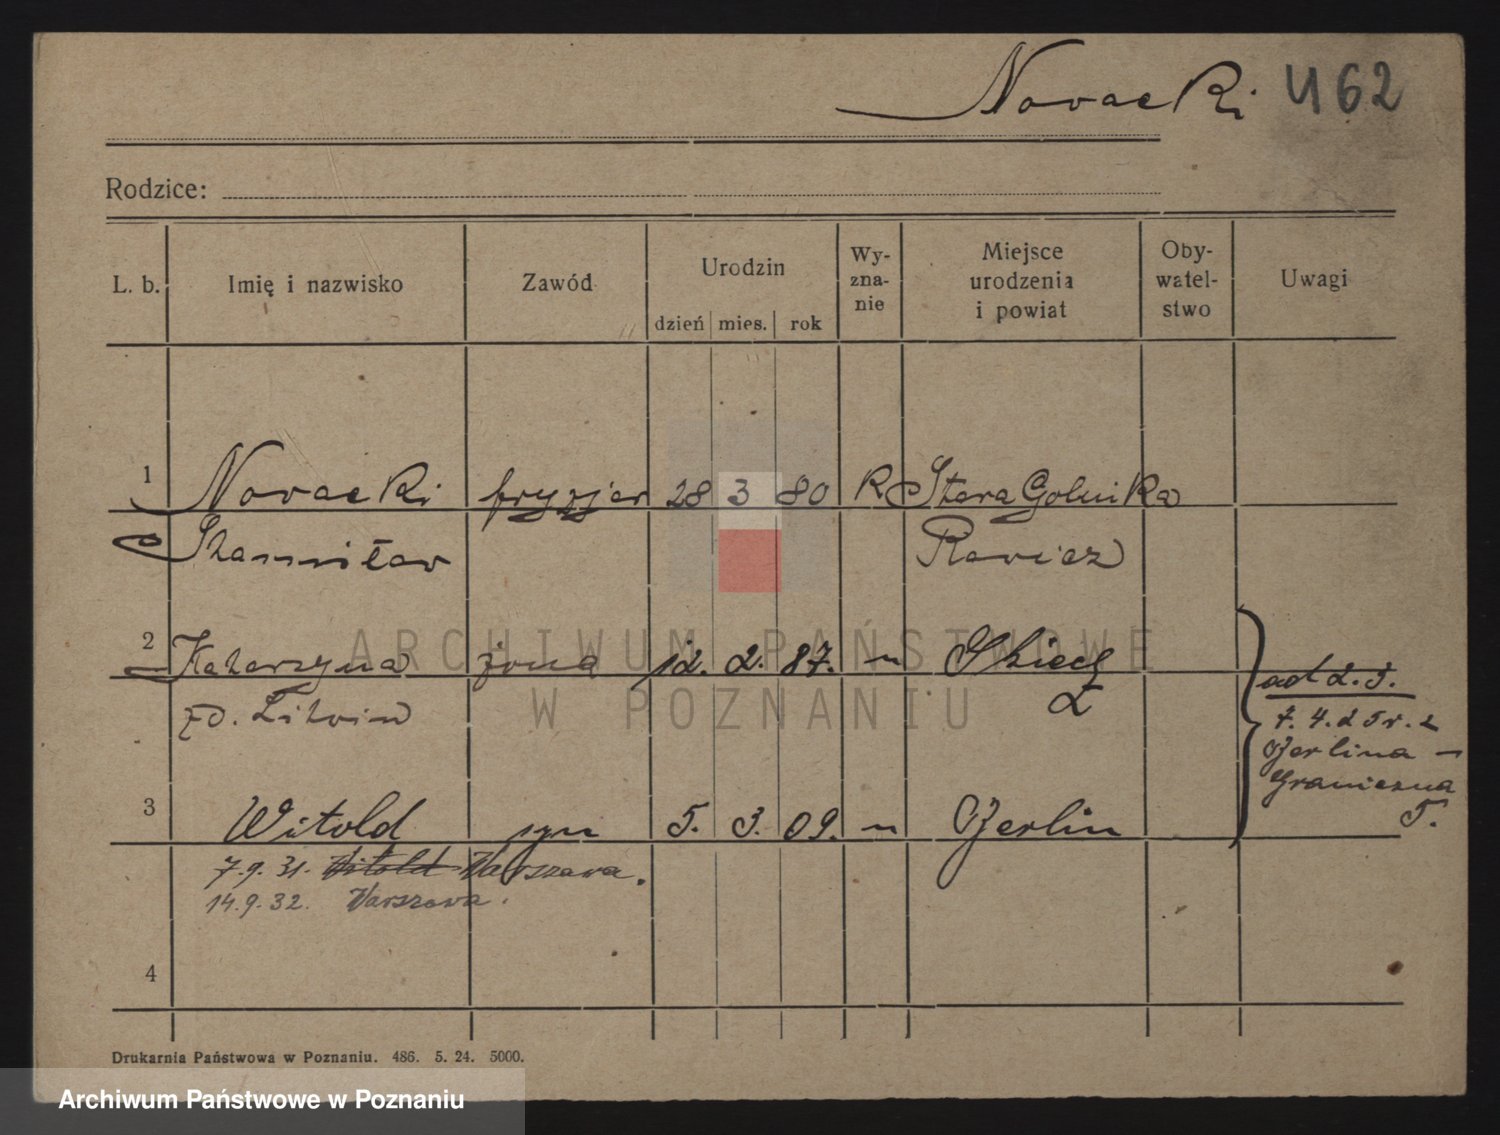 Nowacki 462
Rodzice:
L. b. Imię i nazwisko Zawód Urodzin dzień mies. rok Wy-zna-nie Miejsce urodzenia i powiat Oby-watel-stwo Uwagi
1 Nowacki fryzjer 28 3 80 R Stara Golnika
Stanisław Rawicz
ARCHIWUM PAŃSTWOWE
W POZNANIU
2 Katarzyna żona 12. 2. 87. "
zd. Litwin
ad 2.3.
7. 4. 25 r. z
Berlina –
Graniczna
5.
3 Witold syn 5. 3. 09. " Berlin
7.9.31. Witold Warszawa.
14.9.32. Warszawa.
4
Drukarnia Państwowa w Poznaniu. 486. 5. 24. 5000.
Archiwum Państwowe w Poznaniu